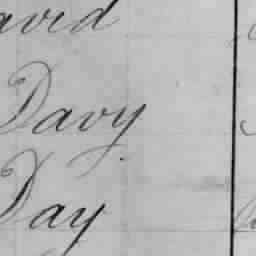 avid
Davy
Day